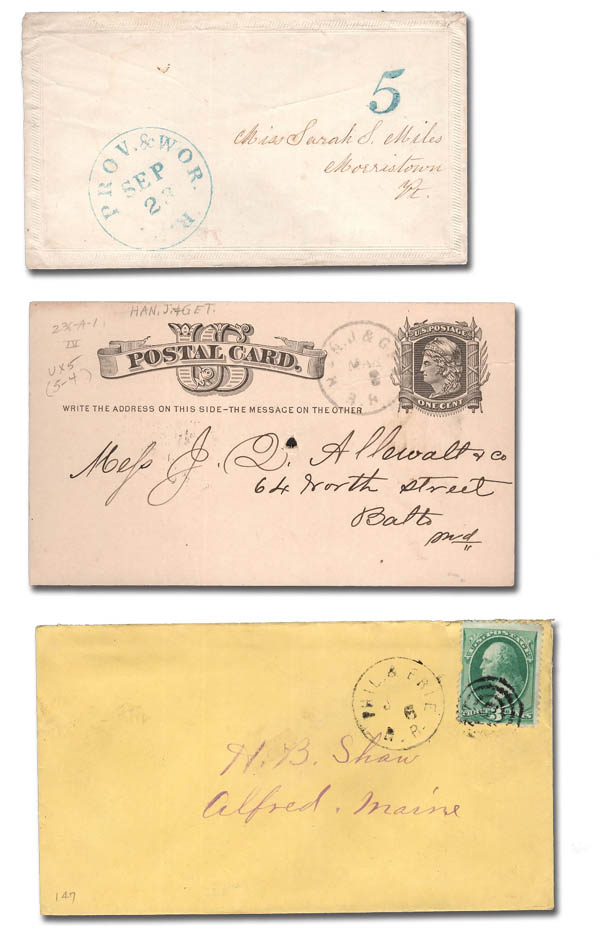 5
PROV. & WOR.
SEP
23
R.
Miss Sarah S. Miles
Morristown
Vt.
HAN. J. & GET.
23K-A-1
IV
UX5
(5-4)
US
POSTAL CARD.
H. J. & G.
8
R. R.
U.S. POSTAGE
ONE CENT
WRITE THE ADDRESS ON THIS SIDE–THE MESSAGE ON THE OTHER
Mess J. D. Allewalt & co
64 North street
Balto
md
PHIL. & ERIE
J 6
R. R.
U.S. POSTAGE
3
H. B. Shaw
Alfred. Maine
147